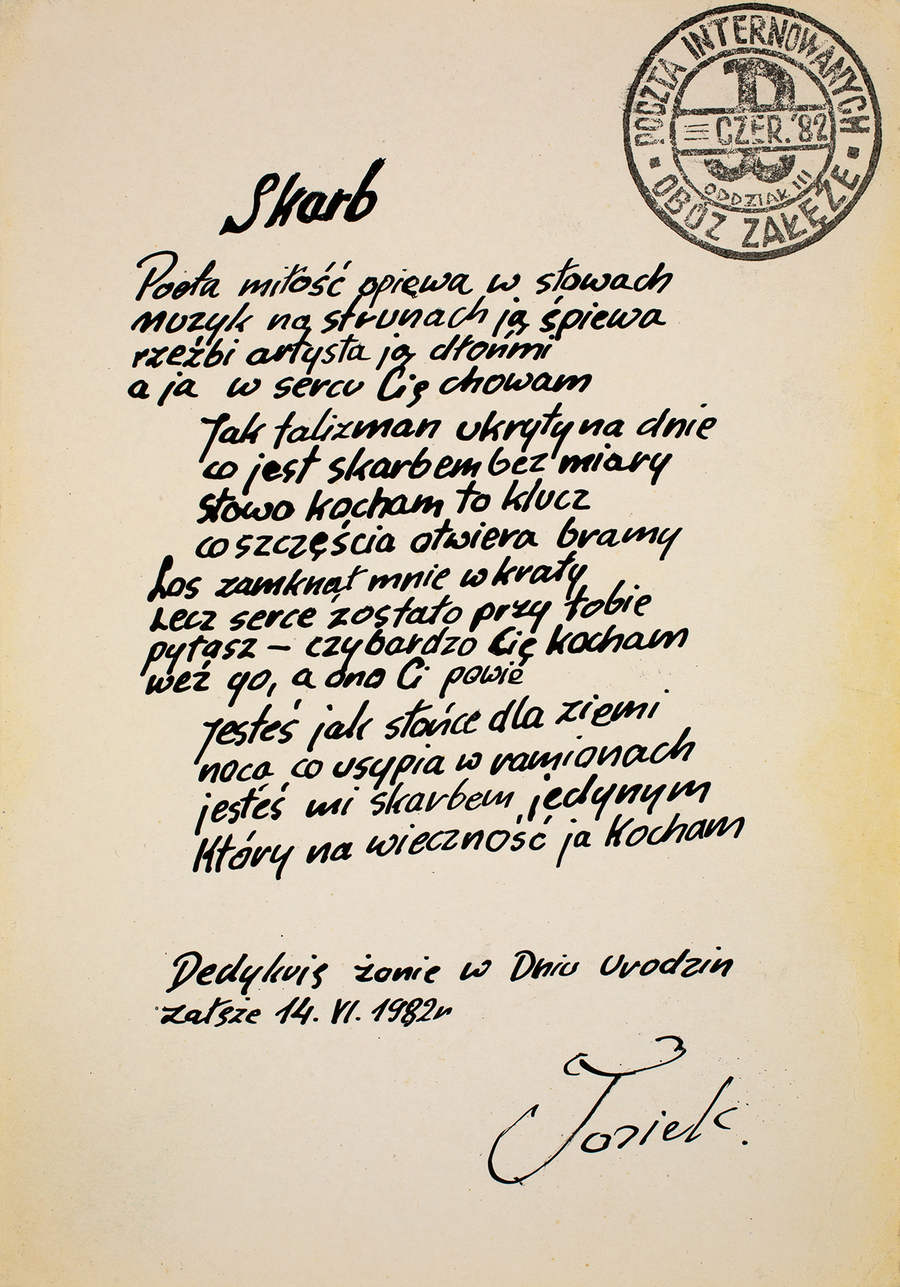 POCZTA INTERNOWANYCH
CZER. '82
ODDZIAŁ III
OBÓZ ZAŁĘŻE
Skarb
Poeta miłość opiewa w słowach
muzyk na strunach ją śpiewa
rzeźbi artysta ją dłońmi
a ja w sercu Cię chowam
Jak talizman ukryty na dnie
co jest skarbem bez miary
słowo kocham to klucz
co szczęścia otwiera bramy
Los zamknął mnie w kraty
Lecz serce zostało przy tobie
pytasz – czy bardzo Cię kocham
weź go, a ono Ci powie
Jesteś jak słońce dla ziemi
nocą co usypia w ramionach
jesteś mi skarbem jedynym
Który na wieczność ja Kocham
Dedykuję żonie w Dniu Urodzin
Załęże 14. VI. 1982r
Toziek.